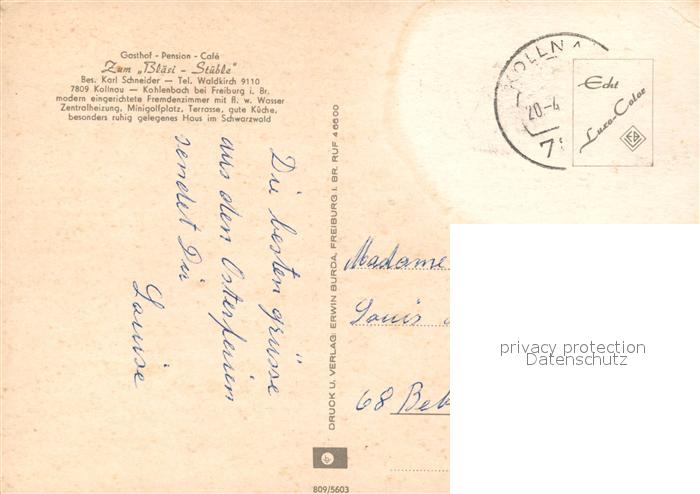 Gasthof - Pension - Café
Zum „Bläsi - Stüble"
Bes. Karl Schneider — Tel. Waldkirch 9110
7809 Kollnau — Kohlenbach bei Freiburg i. Br.
modern eingerichtete Fremdenzimmer mit fl. w. Wasser
Zentralheizung, Minigolfplatz, Terrasse, gute Küche,
besonders ruhig gelegenes Haus im Schwarzwald
Die besten grüsse
aus den Osterferien
sendet Dir
Louise
DRUCK U. VERLAG: ERWIN BURDA, FREIBURG I. BR. RUF 46600
KOLLNA
20.-4
78
Echt
Luxo-Color
Madame
Louis
68 Beb
privacy protection
Datenschutz
809/5603